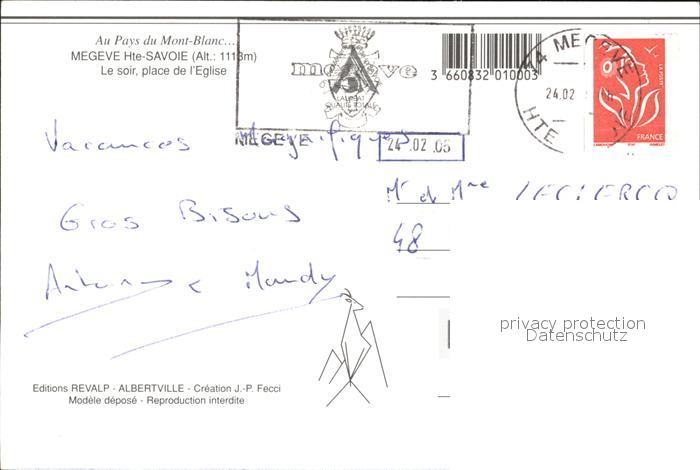 Au Pays du Mont-Blanc...
MEGEVE Hte-SAVOIE (Alt.: 1113m)
Le soir, place de l'Eglise
megève
LAURÉAT
QUALITÉ TOTALE
MEGEVE
24.02.05
3 660832 010003
74 MEGEVE
24.02
HTE
LA POSTE
FRANCE
Vacances Magnifiques
Gros Bisous
Mandy
Mr et Mme LECLERCQ
48
privacy protection
Datenschutz
Editions REVALP - ALBERTVILLE - Création J.-P. Fecci
Modèle déposé - Reproduction interdite